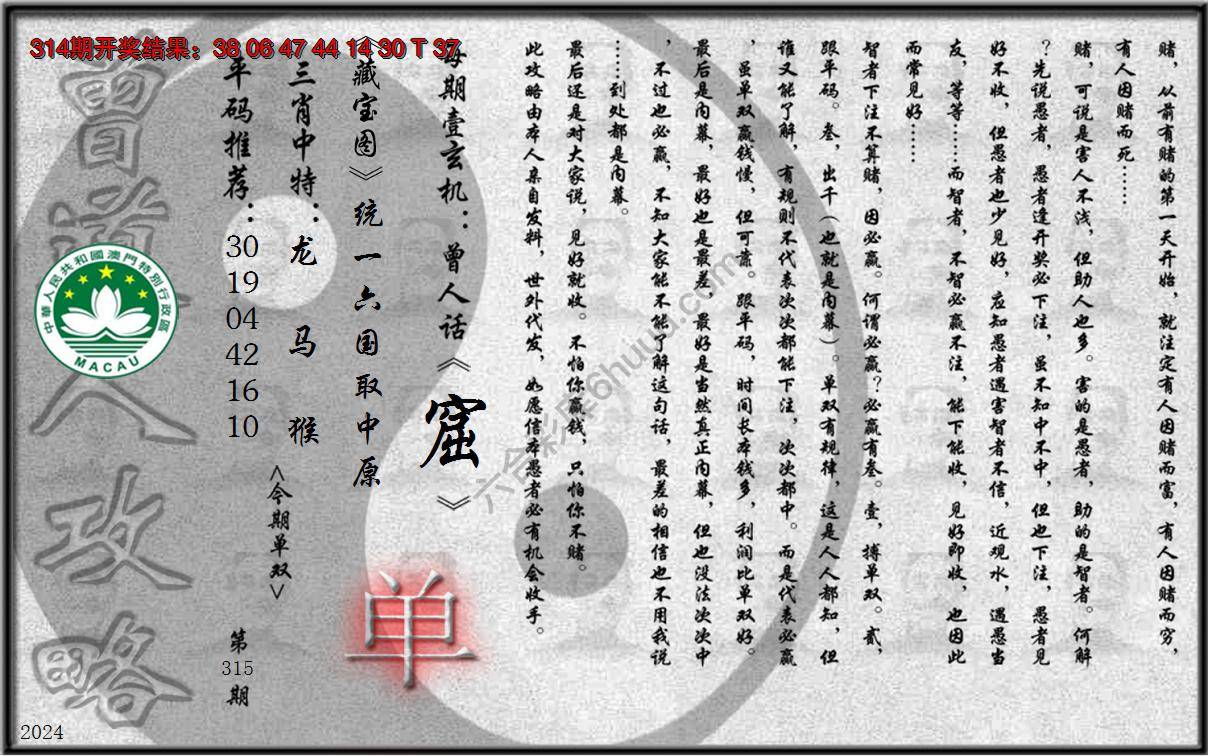 314期开奖结果：38 06 47 44 14 30 T 37
赌，从前有赌的第一天开始，就注定有人因赌而富，有人因赌而穷，
有人因赌而死……
赌，可说是害人不浅，但助人也多。害的是愚者，助的是智者。何解
？先说愚者，愚者逢开奖必下注，虽不知中不中，但也下注，愚者见
好不收，但愚者也少见好，应知愚者遇害智者不信，近观水，遇愚当
友，等等……而智者，不智必赢不注，能下能收，见好即收，也因此
而常见好……
智者下注不算赌，因必赢。何谓必赢？必赢有叁。壹，搏单双。贰，
跟平码。叁，出千（也就是内幕）。单双有规律，这是人人都知，但
谁又能了解，有规则不代表次次都能下注，次次都中。而是代表必赢
，虽单双赢钱慢，但可靠。跟平码，时间长本钱多，利润比单双好。
最后是内幕，最好也是最差，最好是当然真正内幕，但也没法次次中
，不过也必赢，不知大家能不能了解这句话，最差的相信也不用我说
……到处都是内幕。
最后还是对大家说，见好就收。不怕你赢钱，只怕你不赌。
此攻略由本人亲自发料，世外代发，如愿信本愚者必有机会收手。
每期壹玄机：曾人话《窟》
《藏宝图》统一六国取中原
单
三肖中特：龙 马 猴
<今期单双>
平码推荐：30 19 04 42 16 10
第315期
曾道人攻略
中華人民共和國澳門特別行政區
MACAU
六合彩库6huuu.com
2024